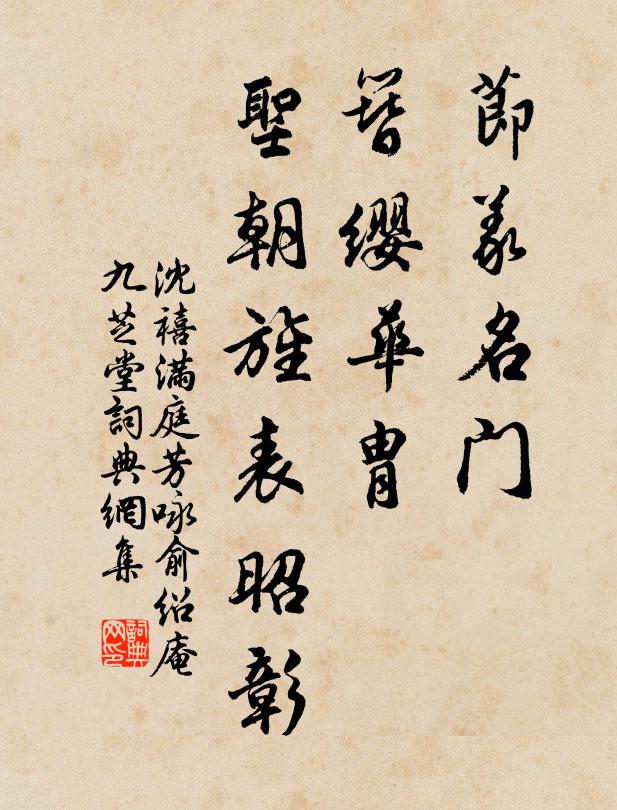 節義名门
簪纓華胄
聖朝旌表昭彰
沈禧满庭芳咏俞紹庵
九芝堂詞典網集
詞典网印